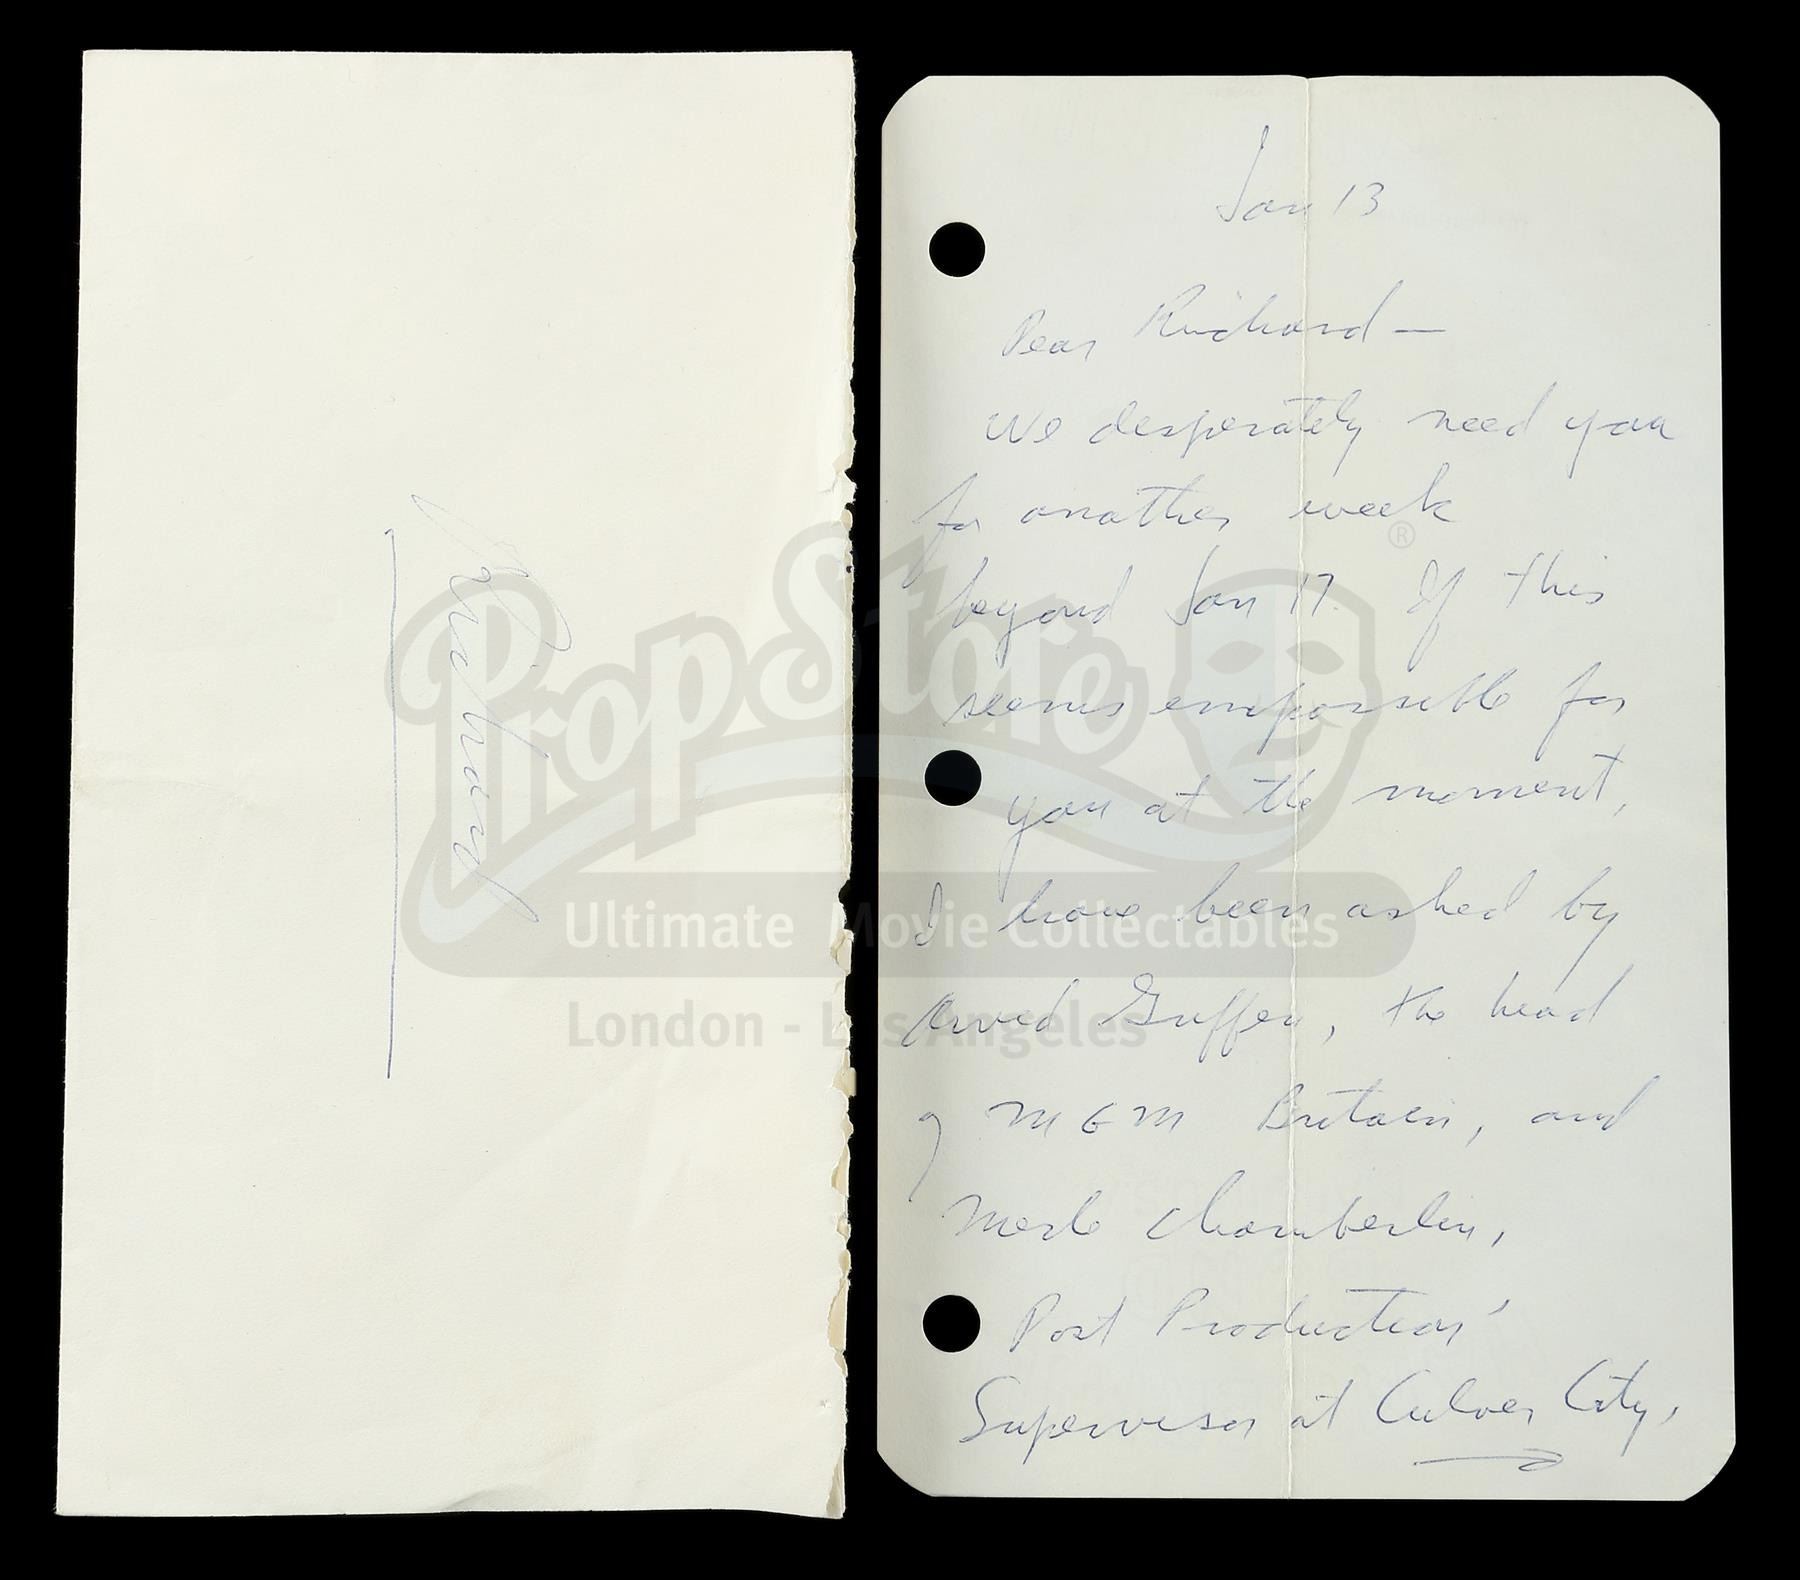 Richard
Jan 13
Dear Richard —
We desperately need you
for another week
beyond Jan 17. If this
seems impossible for
you at the moment,
I have been asked by
Arvid Griffen, the head
of MGM Britain, and
Merle Chamberlin,
Post Production
Supervisor at Culver City,
PropStore ®
Ultimate Movie Collectables
London - Los Angeles